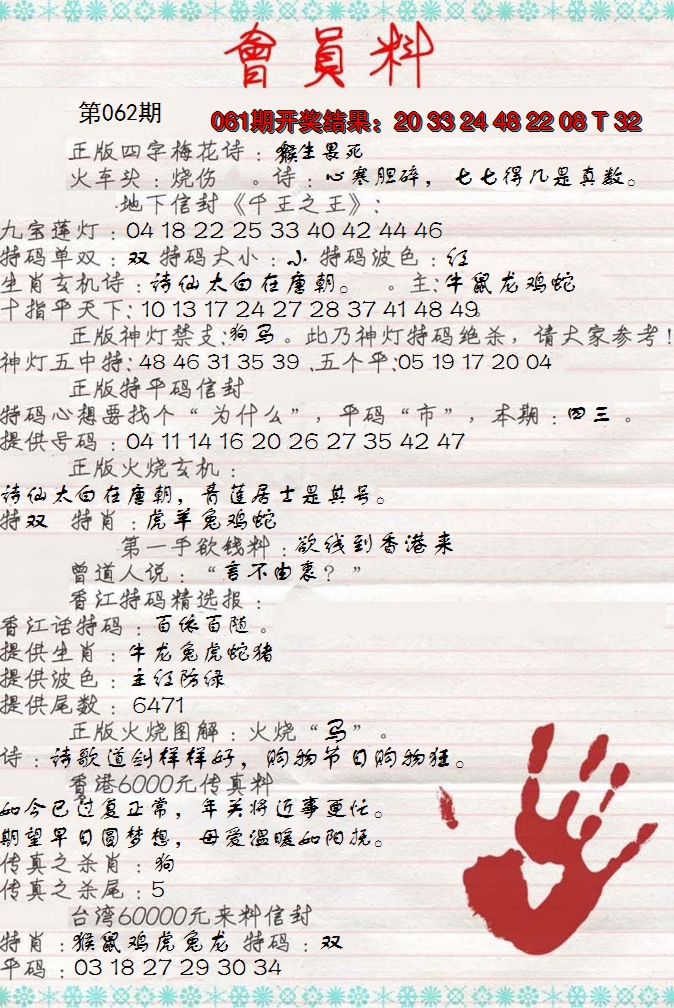 會員料
第062期
061期开奖结果：20 33 24 48 22 08 T 32
正版四字梅花诗：貎生畏死
火车头：烧伤 。诗：心寒胆碎，七七得几是真数。
地下信封《千王之王》：
九宝莲灯：04 18 22 25 33 40 42 44 46
特码单双：双 特码大小：小 特码波色：红
生肖玄机诗：诗仙太白在唐朝。 。主：牛鼠龙鸡蛇
十指平天下：10 13 17 24 27 28 37 41 48 49.
正版神灯禁支：狗马。此乃神灯特码绝杀，请大家参考！
神灯五中特：48 46 31 35 39 .五个平：05 19 17 20 04
正版特平码信封
特码心想要找个“为什么”，平码“市”，本期：四三 。
提供号码：04 11 14 16 20 26 27 35 42 47
正版火烧玄机：
诗仙太白在唐朝，青莲居士是其号。
特双 特肖：虎羊兔鸡蛇
第一手欲钱料：欲钱到香港来
曾道人说：“言不由衷？”
香江特码精选报：
香江话特码：百依百随。
提供生肖：牛龙兔虎蛇猪
提供波色：主红防绿
提供尾数：6471
正版火烧图解：火烧“马”。
诗：诗歌道剑样样好，购物节日购物狂。
香港6000元传真料
如今已过复正常，年关将近事更忙。
期望早日圆梦想，母爱温暖如阳抚。
传真之杀肖：狗
传真之杀尾：5
台湾60000元来料信封
特肖：猴鼠鸡虎兔龙 特码：双
平码：03 18 27 29 30 34